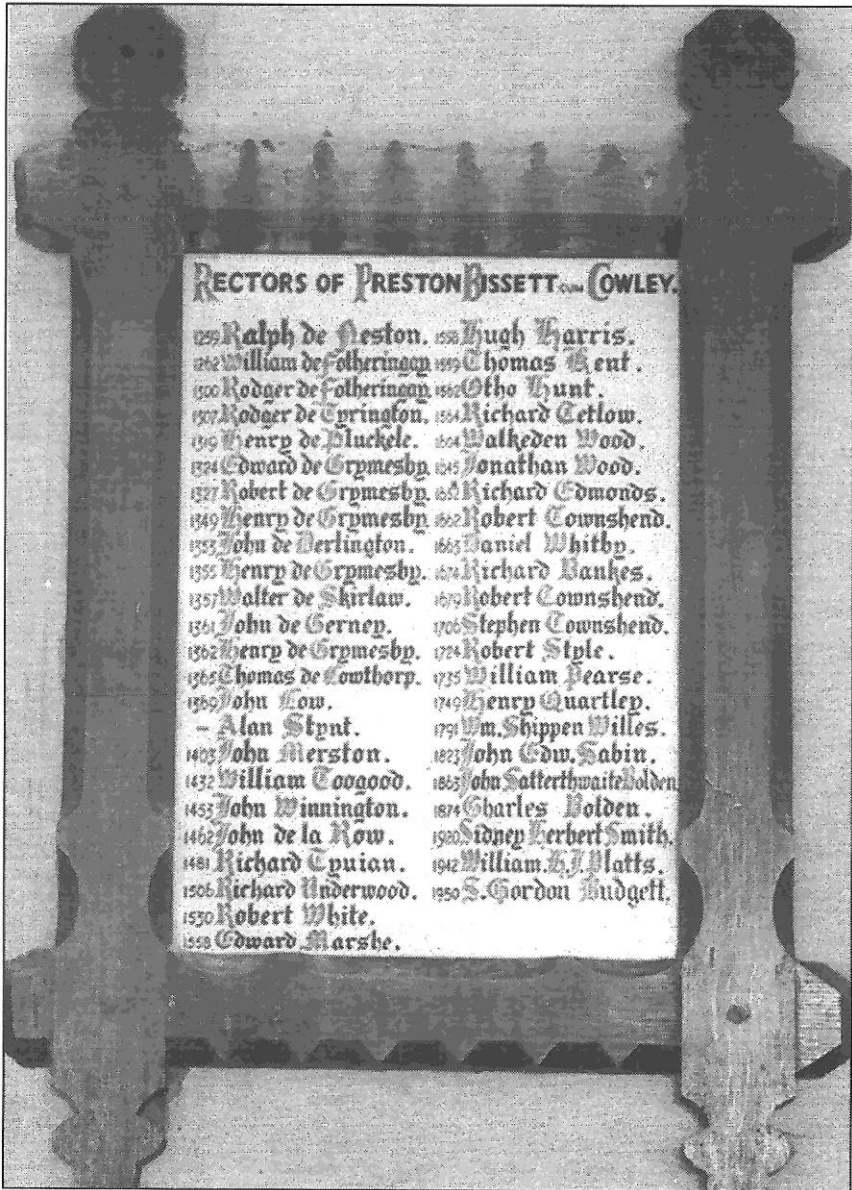 RECTORS OF PRESTON BISSETT CUM COWLEY.
1259 Ralph de Neston.
1262 William de Fotheringay
1300 Rodger de Fotheringay
1307 Rodger de Tyrington.
1319 Henry de Pluckele.
1324 Edward de Grymesby.
1327 Robert de Grymesby.
1349 Henry de Grymesby.
1353 John de Derlington.
1355 Henry de Grymesby.
1357 Walter de Skirlaw.
1361 John de Gerney.
1362 Henry de Grymesby.
1365 Thomas de Cowthorp.
1369 John Low.
– Alan Stynt.
1403 John Merston.
1432 William Toogood.
1453 John Winnington.
1462 John de la Row.
1481 Richard Tyuian.
1506 Richard Underwood.
1530 Robert White.
1558 Edward Marshe.
1558 Hugh Harris.
1559 Thomas Kent.
1562 Otho Hunt.
1564 Richard Tetlow.
1604 Walkeden Wood.
1645 Jonathan Wood.
Richard Edmonds.
1662 Robert Townshend.
1663 Daniel Whitby.
1674 Richard Bankes.
1679 Robert Townshend.
1706 Stephen Townshend.
1724 Robert Style.
1735 William Pearse.
1749 Henry Quartley.
1791 Wm. Shippen Willes.
1823 John Edw. Sabin.
1863 John Satterthwaite Bolden
1874 Charles Bolden.
1920 Sidney Herbert Smith.
1942 William. H.J. Platts.
1950 S. Gordon Budgett.